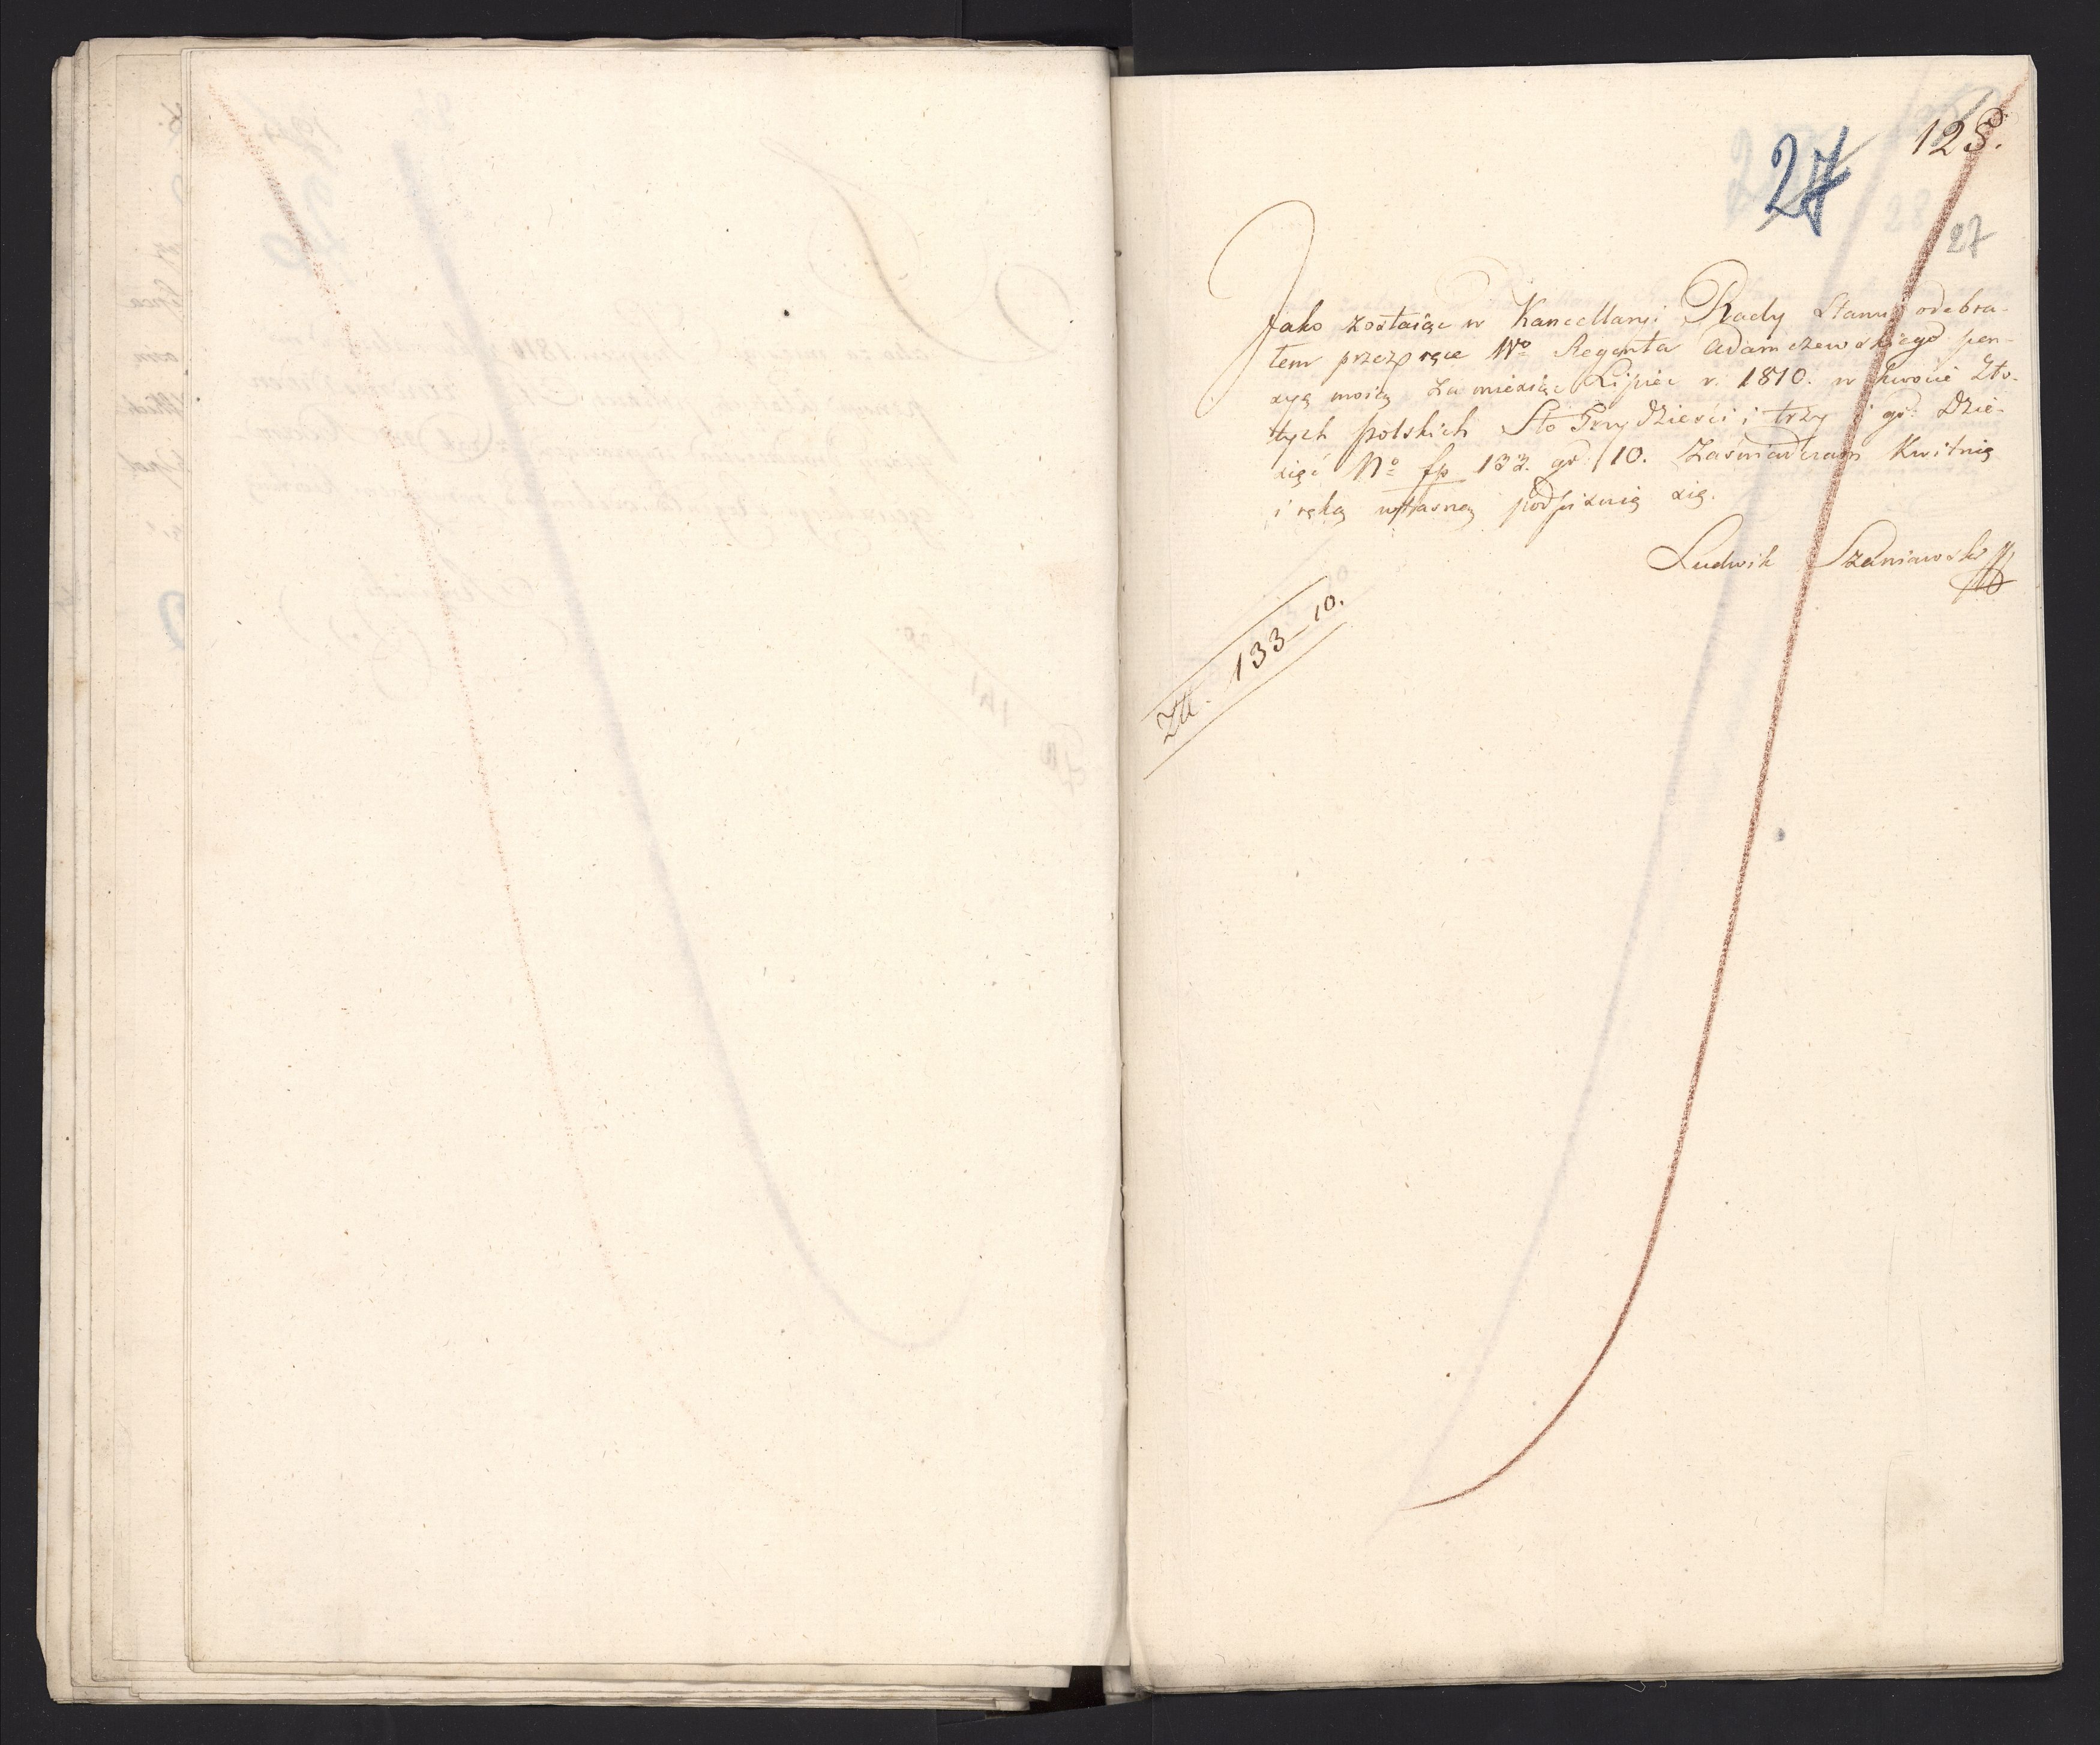 128.
27
27
Jako zostaiąc w Kancellaryi Rady Stanu odebra-
łem przez ręce Wo Regenta Adamczewskiego pen-
syą moią za miesiąc Lipiec r. 1810. w kwocie Zło-
tych polskich Sto Trzydzieści i trzy i gr: Dzie-
sięć No fp 133. gr: 10. Zaświadczam Kwituię
i ręką własną podpisuię się.
Ludwik Szaniawski
Złł. 133–10.